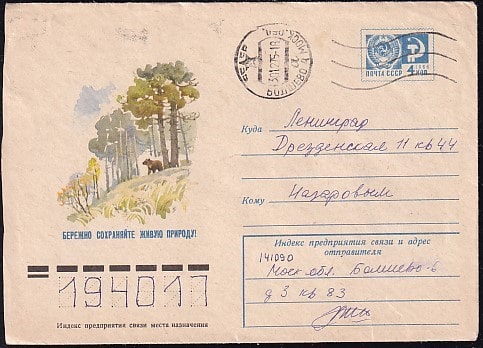 ПОЧТА СССР
4 КОП
1966
БОЛШЕВО
МОСК. ОБЛ.
БЕРЕЖНО СОХРАНЯЙТЕ ЖИВУЮ ПРИРОДУ!
Куда Ленинград
Дрезденская 11 кв 44
Кому Назаровым
Индекс предприятия связи и адрес отправителя
141090
Моск обл. Болшево-6
д 3 кв 83
194017
Индекс предприятия связи места назначения